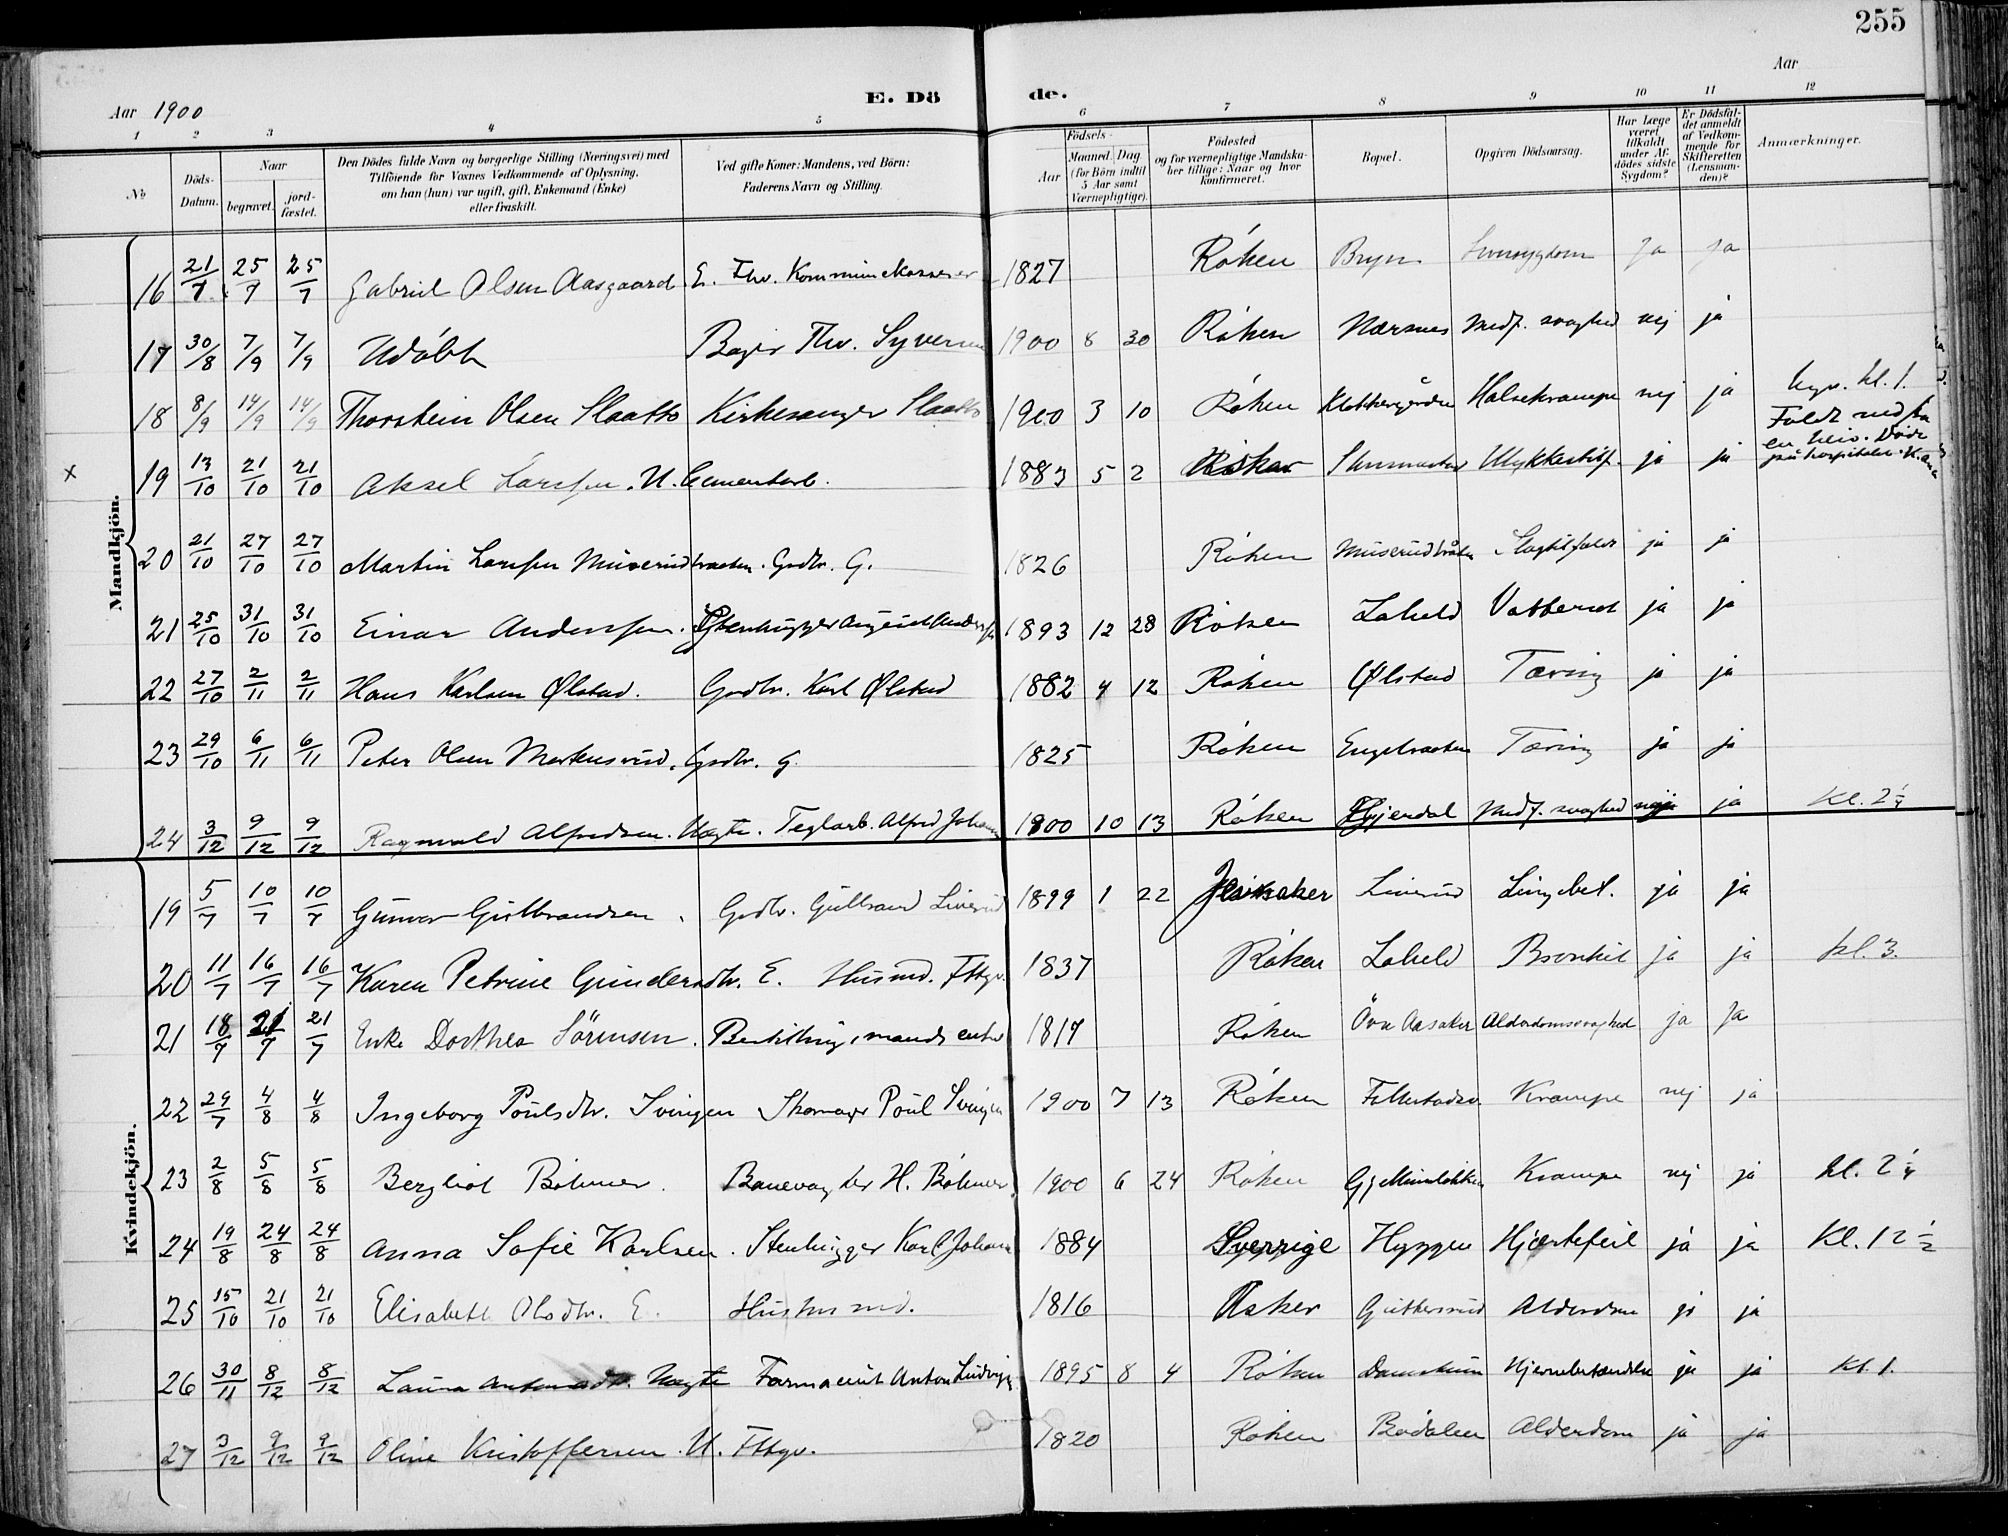 255
Aar 1900
E. Dö de.
Aar
1 2 3 4 5 6 7 8 9 10 11 12
No
Döds-Datum.
Naar
begravet.
jord-fæstet.
Den Dödes fulde Navn og borgerlige Stilling (Næringsvei) med
Tilföiende for Voxnes Vedkommende af Oplysning,
om han (hun) var ugift, gift, Enkemand (Enke)
eller fraskilt.
Ved gifte Koner: Mandens, ved Börn:
Faderens Navn og Stilling.
Födsels-
Aar
Maaned. Dag
(for Börn indtil
5 Aar samt
Værnepligtige).
Födested
og for værnepligtige Mandska-
ber tillige: Naar og hvor
konfirmeret.
Bopæl.
Opgiven Dödsaarsag.
Har Læge
været
tilkaldt
under Af-
dödes sidste
Sygdom?
Er Dödsfal-
det anmeldt
af Vedkom-
mende for
Skifteretten
(Lensman-
den)?
Anmærkninger.
Mandkjön.
16 21/7 25/7 25/7 Gabriel Olsen Aasgaard E. Fhv. Kommunekasserer 1827 Röken Bryn ja ja
17 30/8 7/9 7/9 Udöbt Thv. Syversen 1900 8 30 Röken Nærsnes Medf. svaghed nej ja
18 8/9 14/9 14/9 Thorstein Olsen Slaatto Kirkesanger Slaatto 1900 3 10 Röken Halsekrampe nej ja kl. 1.
x 19 13/10 21/10 21/10 Aksel Larssen. U. Cementarb. 1883 5 2 Ulykkestilf. ja ja Faldt ned fra en Död
20 21/10 27/10 27/10 Martin Larssen Muserudbraaten. Grdbr. G. 1826 Röken Muserudbråten Slagtilfælde ja ja
21 25/10 31/10 31/10 Einar Anderssen. Stenhugger August Anderssen 1893 12 28 Röken Laheld Vattersot ja ja
22 27/10 2/11 2/11 Hans Karlsen Ølstad. Grdbr. Karl Ølstad 1882 4 12 Röken Ølstad Tæring ja ja
23 29/10 6/11 6/11 Peter Olsen Morkusrud. Grdbr. G. 1825 Röken Engebraaten Tæring ja ja
24 3/12 9/12 9/12 Ragnvald Alfredsen. Uægte. Teglarb. Alfred Johans 1900 10 13 Röken Gjerdal Medf. svaghed ja Kl. 2 1/4
Kvindekjön.
19 5/7 10/7 10/7 Gunvor Gulbrandsen. Grdbr. Gulbrand Liverud 1899 1 22 Liverud Lungebet. ja ja
20 11/7 16/7 16/7 Karen Petrine Gundersdtr. E. Husmd. Fttgv. 1837 Röken Laheld Bronkit ja ja kl. 3.
21 18/7 21/7 21/7 Enke Dorthea Sörensen. Bestillingsmands enke 1817 Röken Övre Aasaker Alderdomssvaghed ja ja
22 29/7 4/8 4/8 Ingeborg Poulsdtr. Svingen Skomager Poul Svingen 1900 7 13 Röken Krampe nej ja
23 2/8 5/8 5/8 Bergliot Böhmer. Banevogter H. Böhmer. 1900 6 24 Röken Krampe nej ja kl. 2 1/4
24 19/8 24/8 24/8 Anna Sofie Karlsen. Stenhugger Karl Johans 1884 Sverrige Hyggen Hjertefeil ja ja Kl. 12 1/2
25 15/10 21/10 21/10 Elisabeth Olsdtr. E. Husmd. 1816 Asker Guttersrud Alderdom ja ja
26 30/11 8/12 8/12 Laura Antonsdtr. Uægte Farmaceut Anton Ludvigs 1895 8 4 Röken Hjernebetændelse ja ja Kl. 1.
27 3/12 9/12 9/12 Oline Kristoffersen. U. Fttgv. 1820 Röken Bödalen Alderdom ja ja